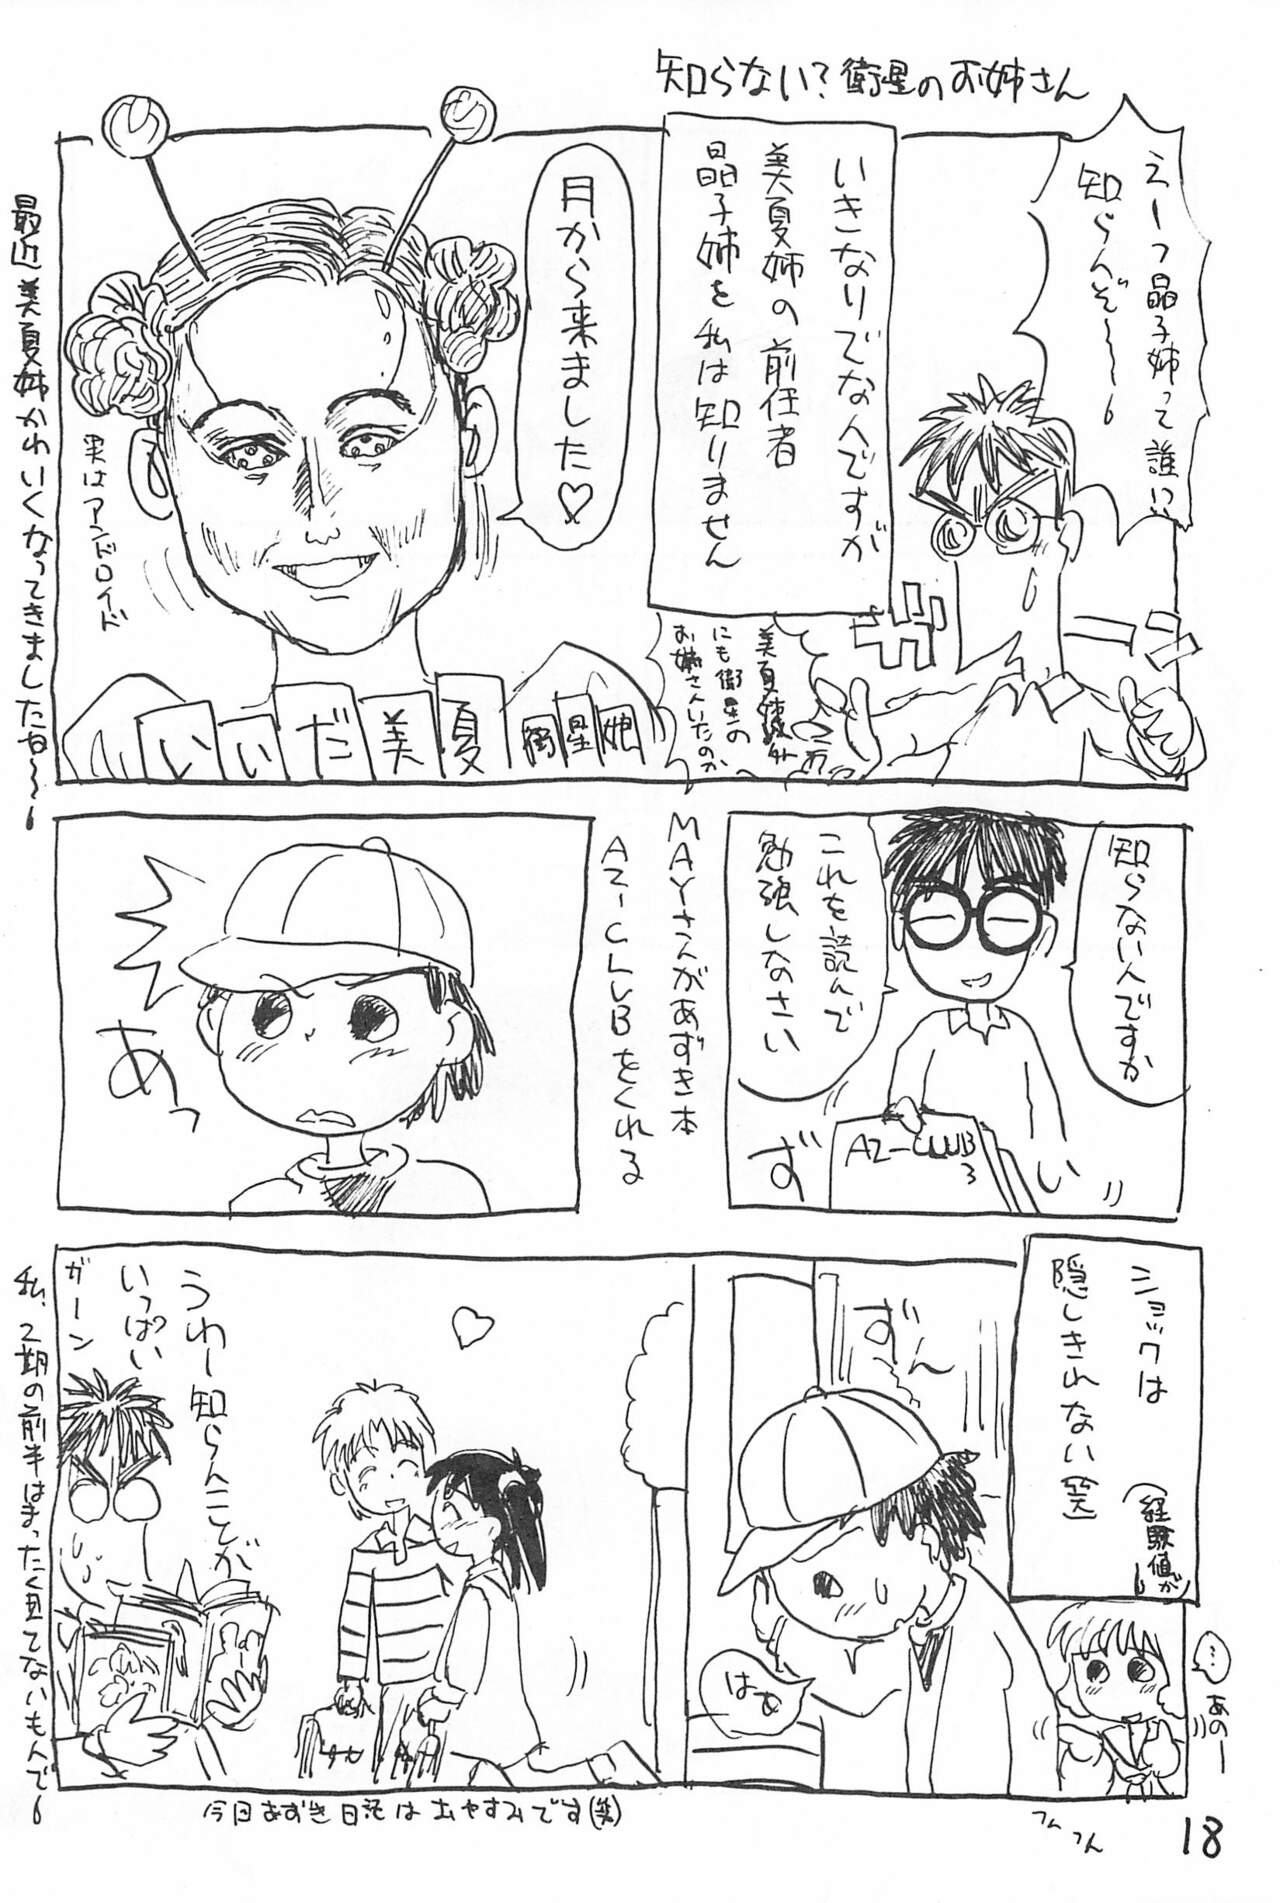 知らない?衛星のお姉さん
えーっ晶子姉って誰い
知らんぞ〜〜
いきなりでなんですが
美夏姉の前任者
晶子姉を私は知りません
ガーン
美夏姉以外
にも衛星の
お姉さんいたのか
月から来ました♡
実はアンドロイド
いいだ美夏
衛星娘
最近美夏姉かわいくなってきましたね〜〜
知らないんですか
これを読んで
勉強しなさい
AZ-CLUB
3
ずい
MAYさんがあずき本
AZ-CLUBをくれる
あっ
ショックは
隠しきれない(笑)
(経験値が)
ずーん
はぁ
…
あのー
うわー知らんことが
いっぱい
ガーン
私、2期の前半はまったく見てないもんで
今回あずき日記はおやすみです(笑)
ふんふん
18